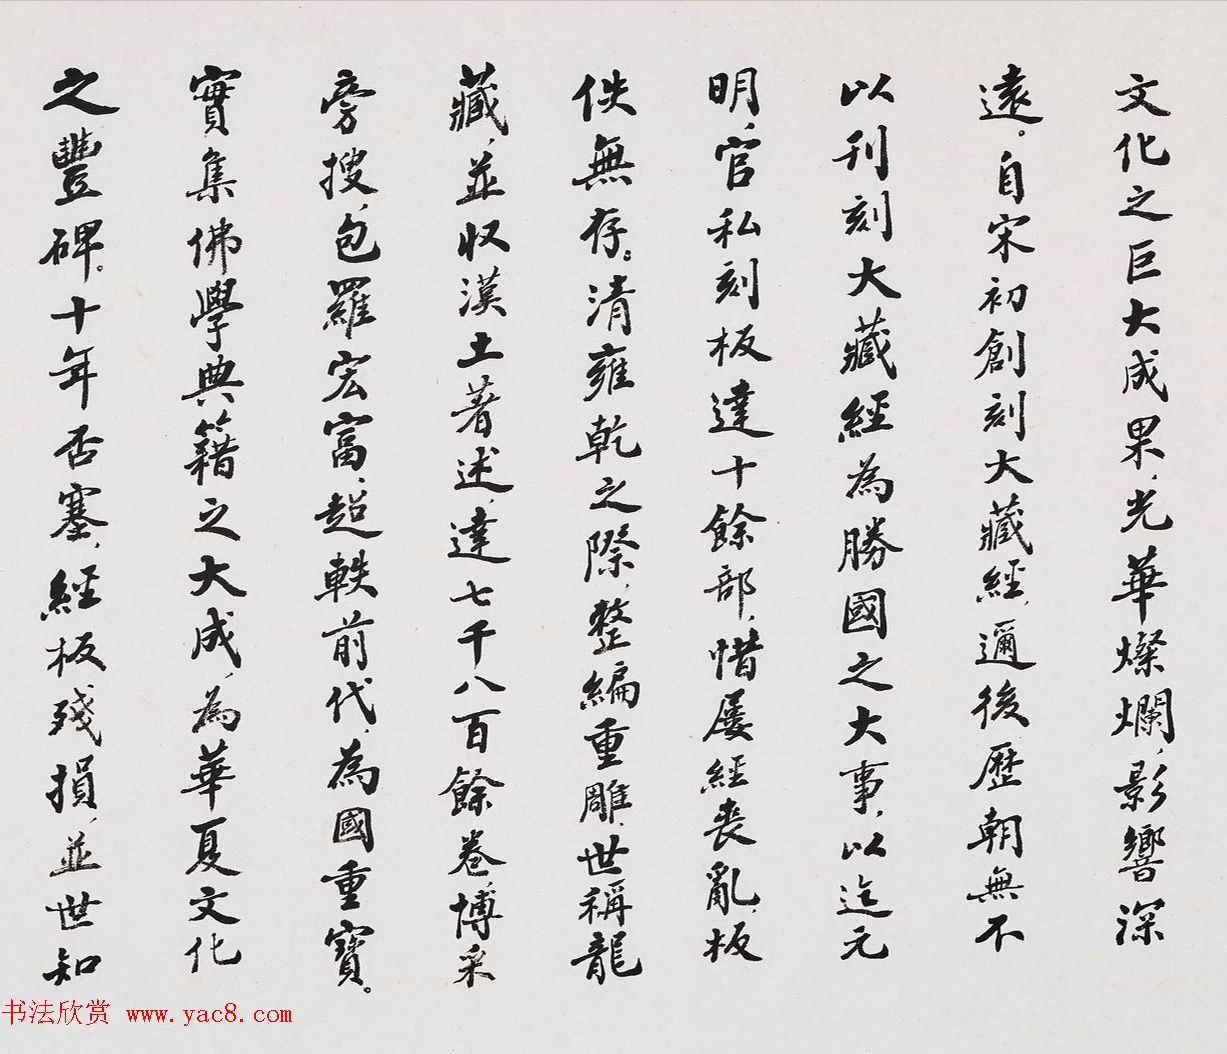 文化之巨大成果，光華燦爛，影響深
遠。自宋初創刻大藏經，邇後歷朝無不
以刊刻大藏經為勝國之大事，以迄元
明，官私刻板達十餘部，惜屡經喪亂，板
佚無存。清雍乾之際，整編重雕，世稱龍
藏，並收漢土著述，達七千八百餘卷，博采
旁搜，包羅宏富，超軼前代，為國重寶。
實集佛學典籍之大成，為華夏文化
之豐碑。十年否塞，經板殘損，並世知
书法欣赏 www.yac8.com